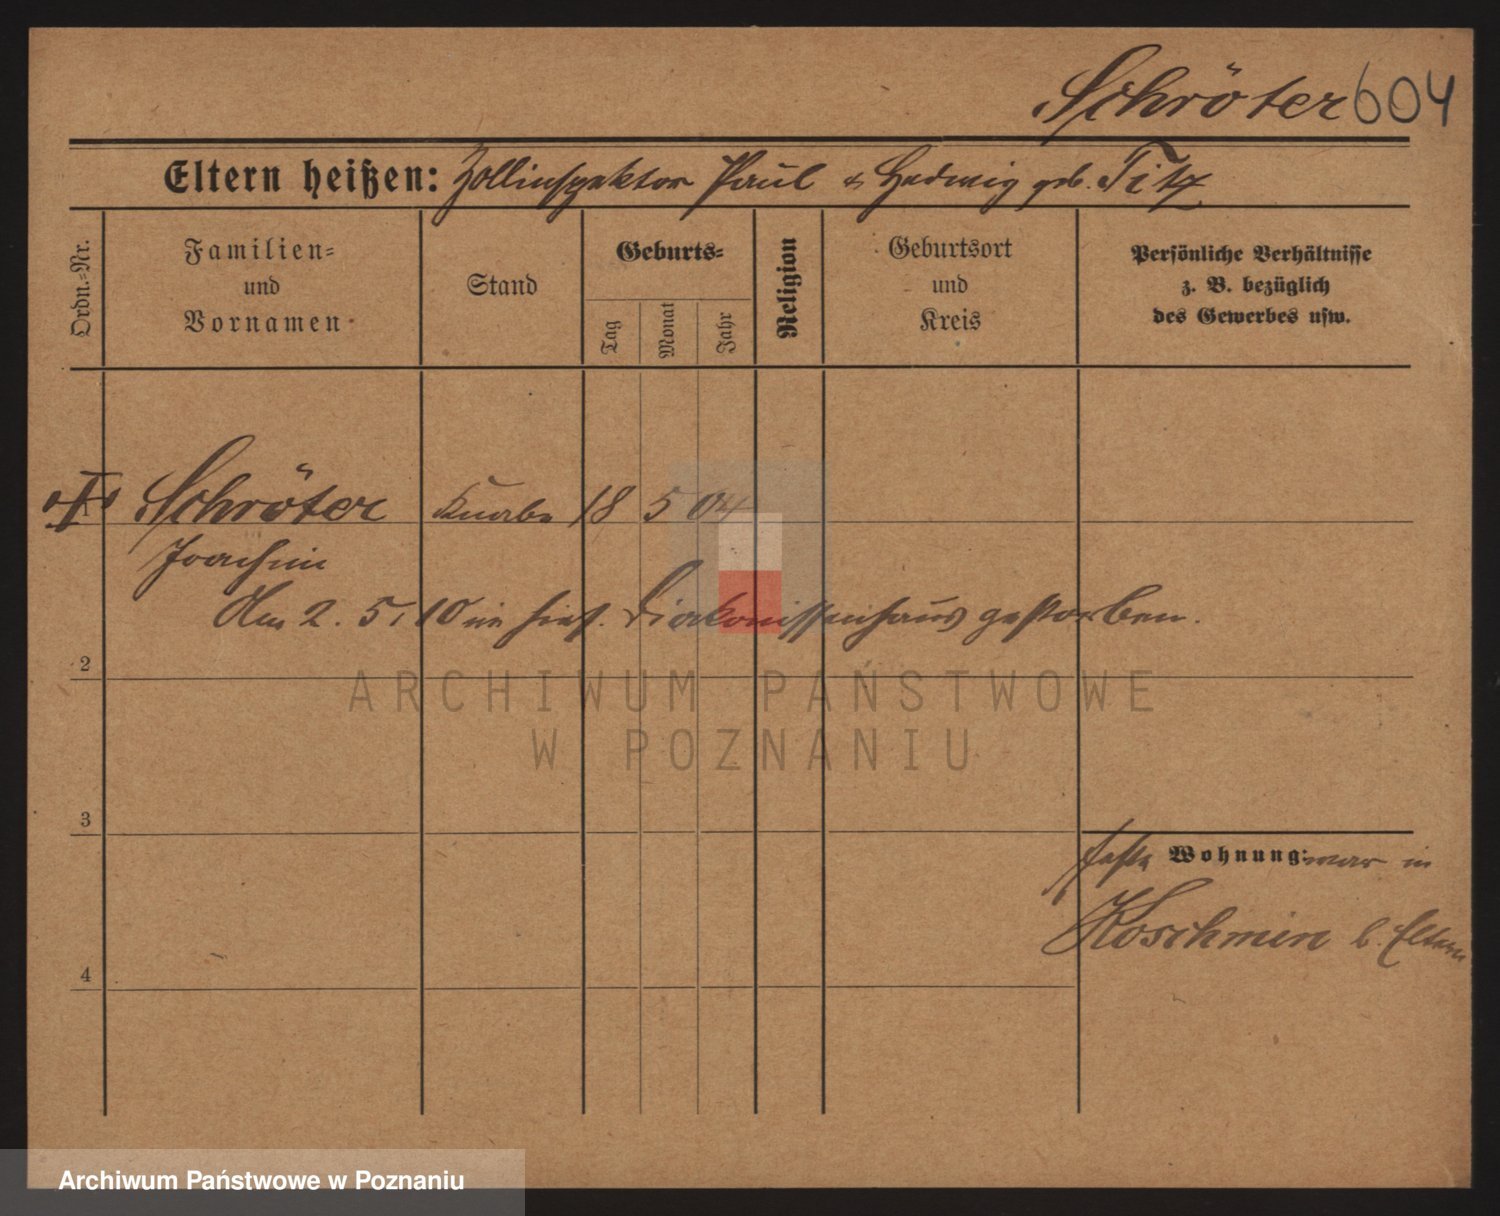 Schröter 604
Eltern heißen: Zollinspektor Paul & Hedwig geb. Titz
Ordn.-Nr.
Familien-
und
Vornamen
Stand
Geburts-
Tag
Monat
Jahr
Religion
Geburtsort
und
Kreis
Persönliche Verhältnisse
z. B. bezüglich
des Gewerbes usw.
1 Schröter Knabe 18 5 04
Joachim
Am 2. 5. 10 im hies. Diakonissenhaus gestorben.
2
ARCHIWUM PAŃSTWOWE
W POZNANIU
3
feste Wohnung: war in
Koschmin b. Eltern
4
Archiwum Państwowe w Poznaniu